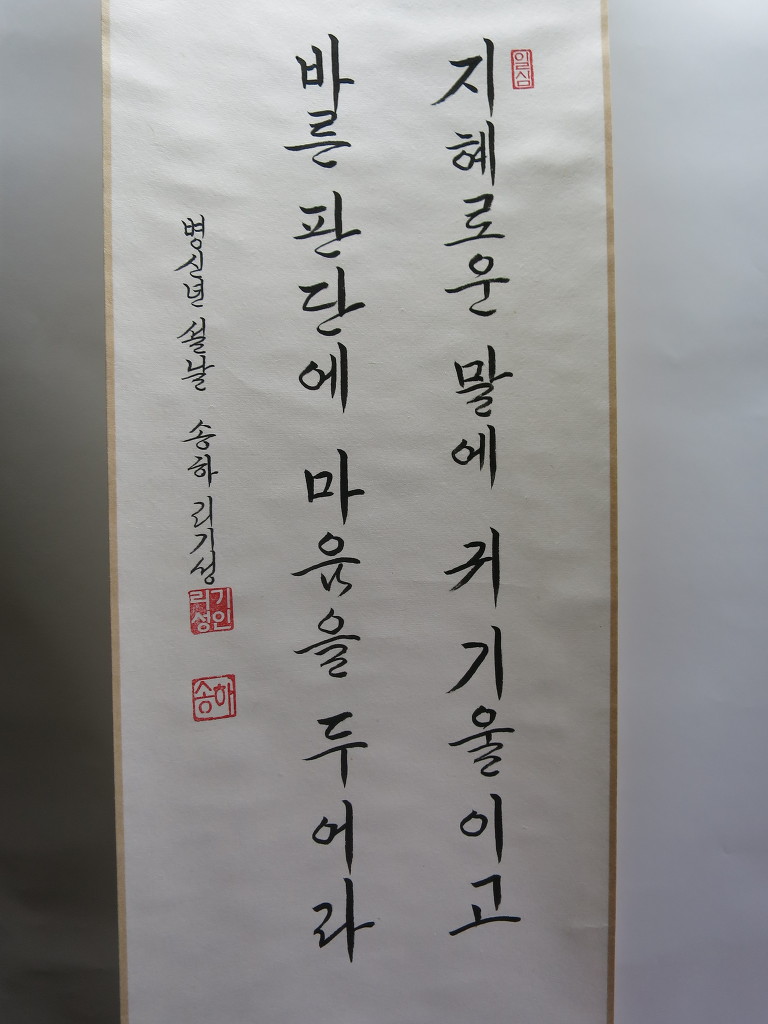 일심
지혜로운 말에 귀 기울이고
바른 판단에 마음을 두어라
병신년 설날 송하 리기성
리기성인
송하